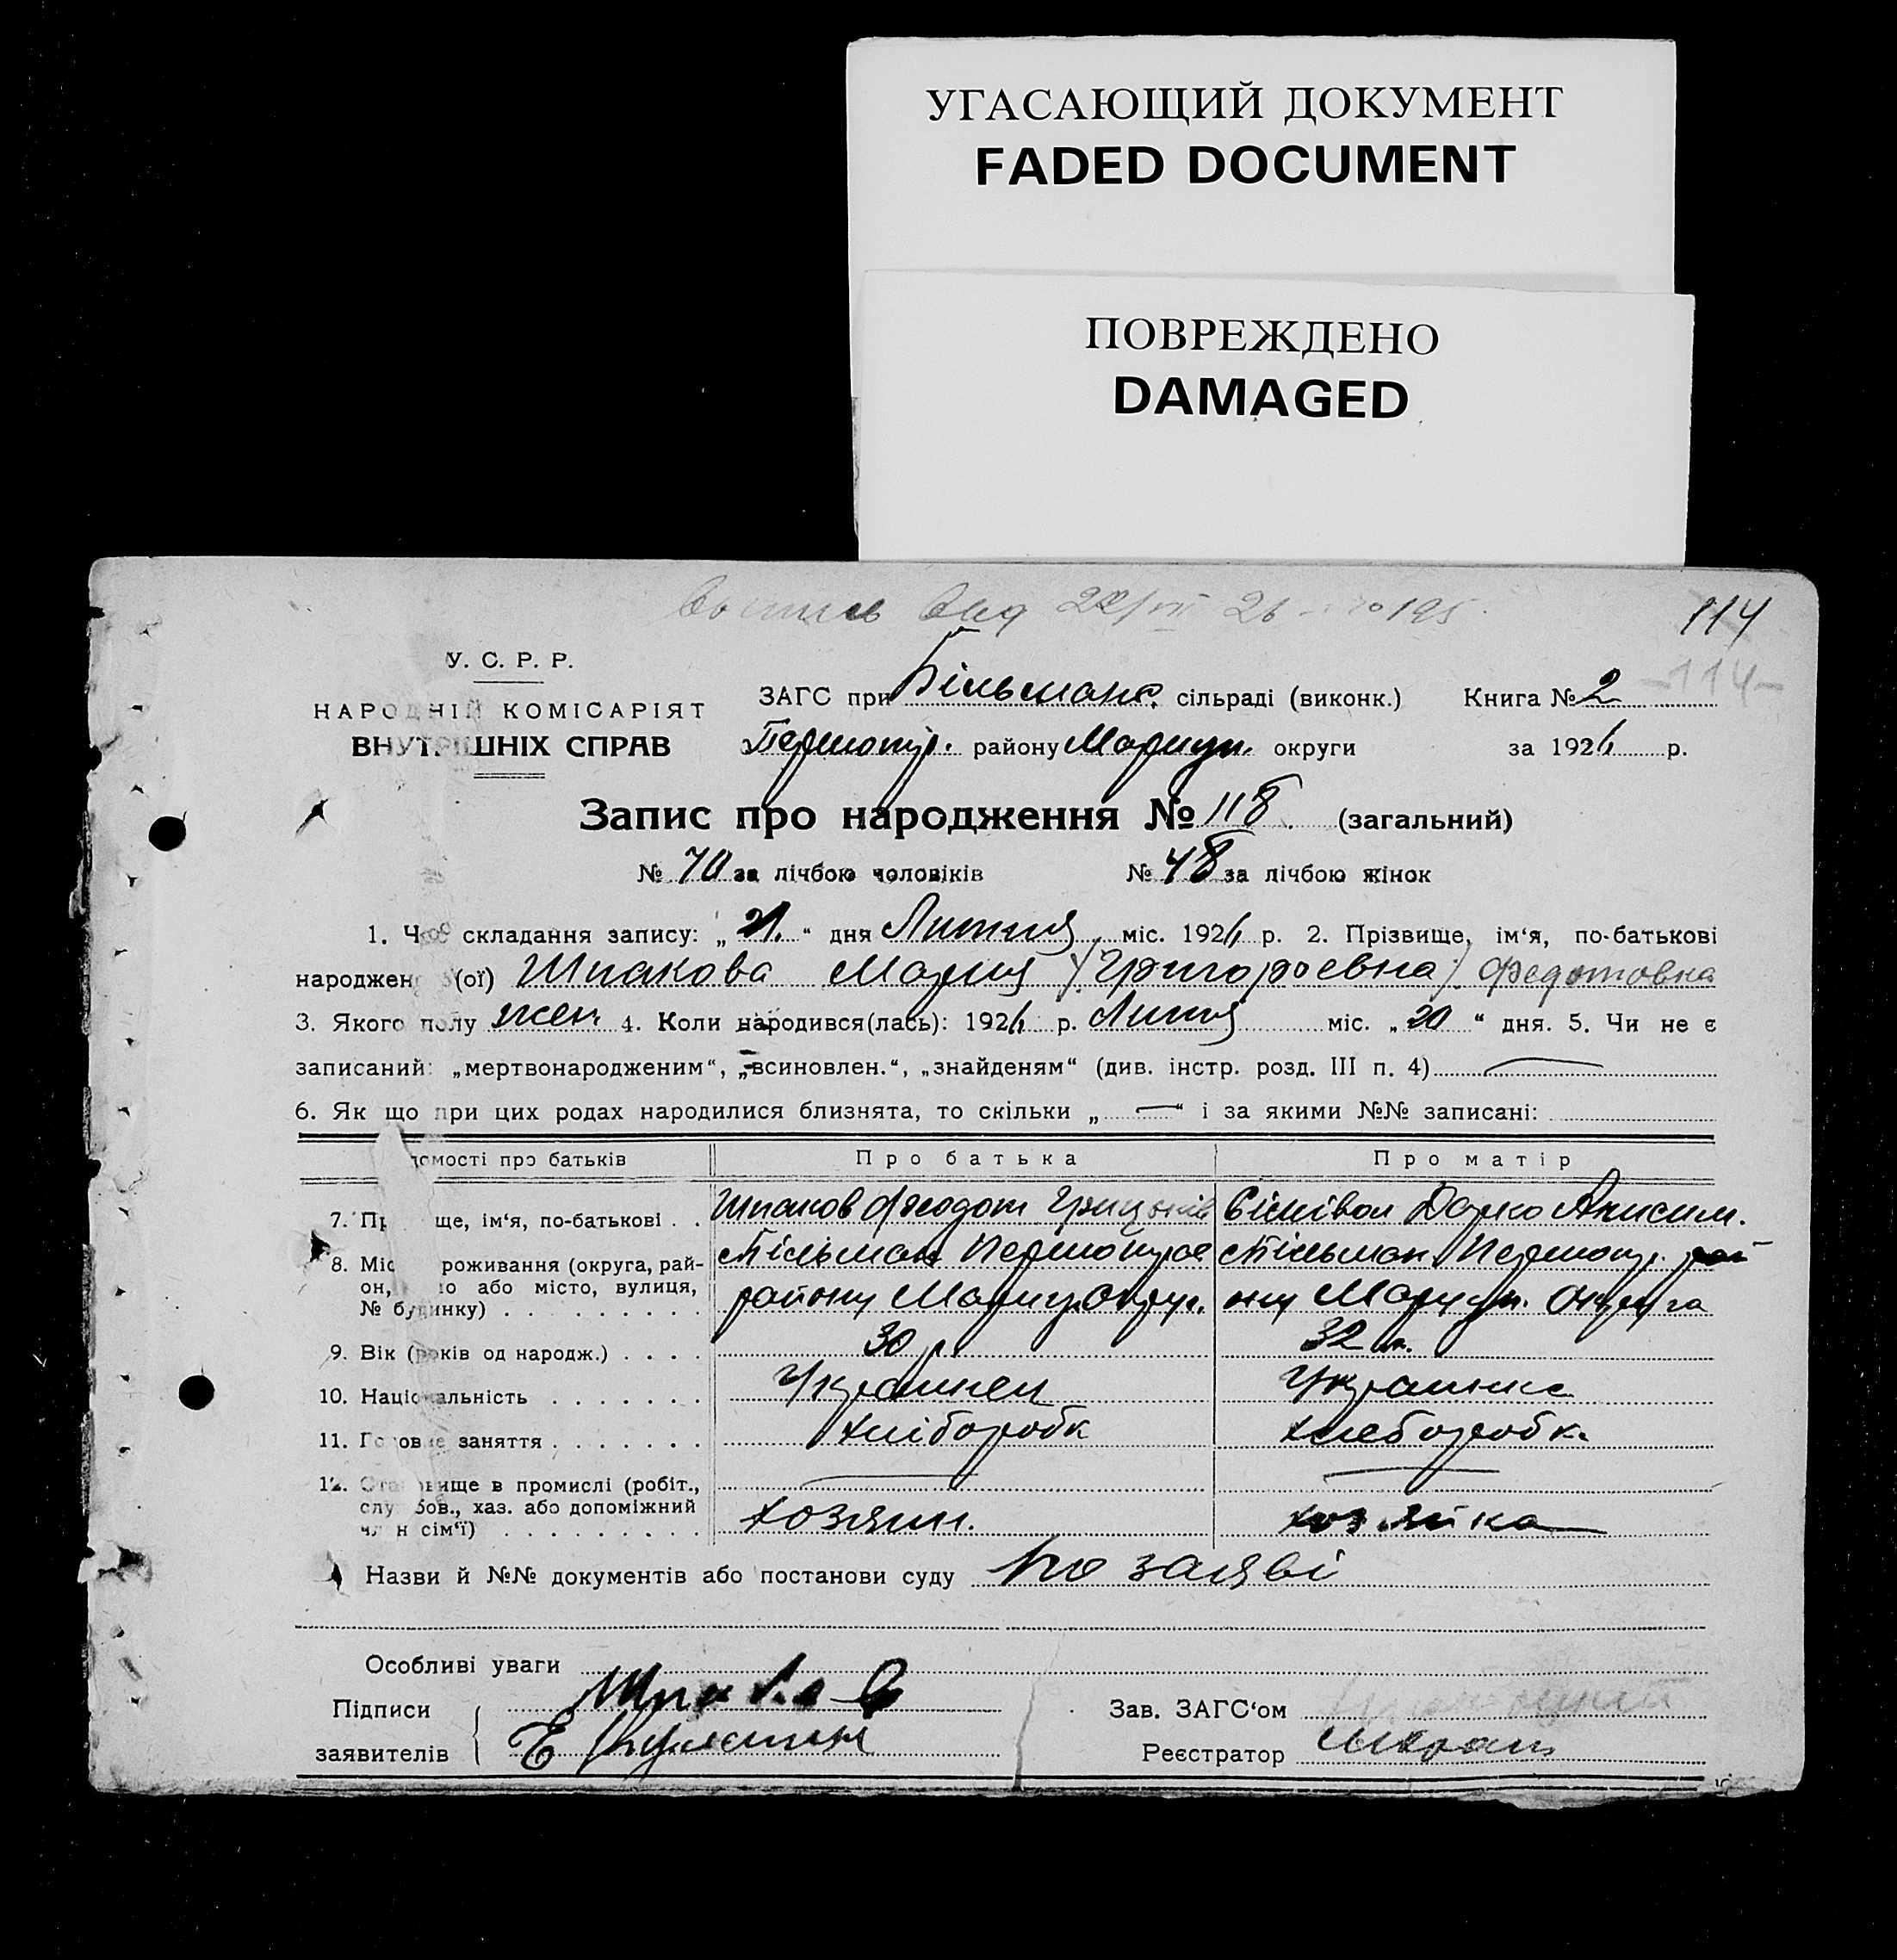 УГАСАЮЩИЙ ДОКУМЕНТ
FADED DOCUMENT
ПОВРЕЖДЕНО
DAMAGED
22/VII 26 195
114
-114-
У. С. Р. Р.
НАРОДНІЙ КОМІСАРІЯТ
ВНУТРІШНІХ СПРАВ
ЗАГС при Більманс. сільраді (виконк.) Книга № 2
району Маріуп. округи за 1926 р.
Запис про народження № 118 (загальний)
№ 70 за лічбою чоловіків № 48 за лічбою жінок
1. Час складання запису: „21.“ дня Липня міс. 1926 р. 2. Прізвище, ім‘я, по-батькові
народжен (ої) Шпакова Мария (Григорьевна) Федотовна
3. Якого полу жен. 4. Коли народився(лась): 1926 р. Липня міс. „20“ дня. 5. Чи не є
записаний: „мертвонародженим“, „всиновлен.“, „знайденям“ (див. інстр. розд. III п. 4)
6. Як що при цих родах народилися близнята, то скільки „—“ і за якими №№ записані:
домості про батьків Про батька Про матір
7. Пр ще, ім‘я, по-батькові . . Шпаков Феодот Дарко Анисим.
8. Міс роживання (округа, рай-
он, або місто, вулиця,
№ будинку) . . . . . . . . .
Більман
району Маріуп. Округ.
Більман
ону Маріуп. Округа
9. Вік (років од народж.) . . . . 30 р. 32
10. Національність . . . . . . . Украинец Украинка
11. Головне заняття . . . . . . . хлібороб хлебороб
12. Становище в промислі (робіт.,
службов., хаз. або допоміжний
член сім‘ї) . . . . . . . . . хозяин. хозяйка
Назви й №№ документів або постанови суду по заяві
Особливі уваги
Підписи Шпаков
заявителів Е
Зав. ЗАГС‘ом
Реєстратор